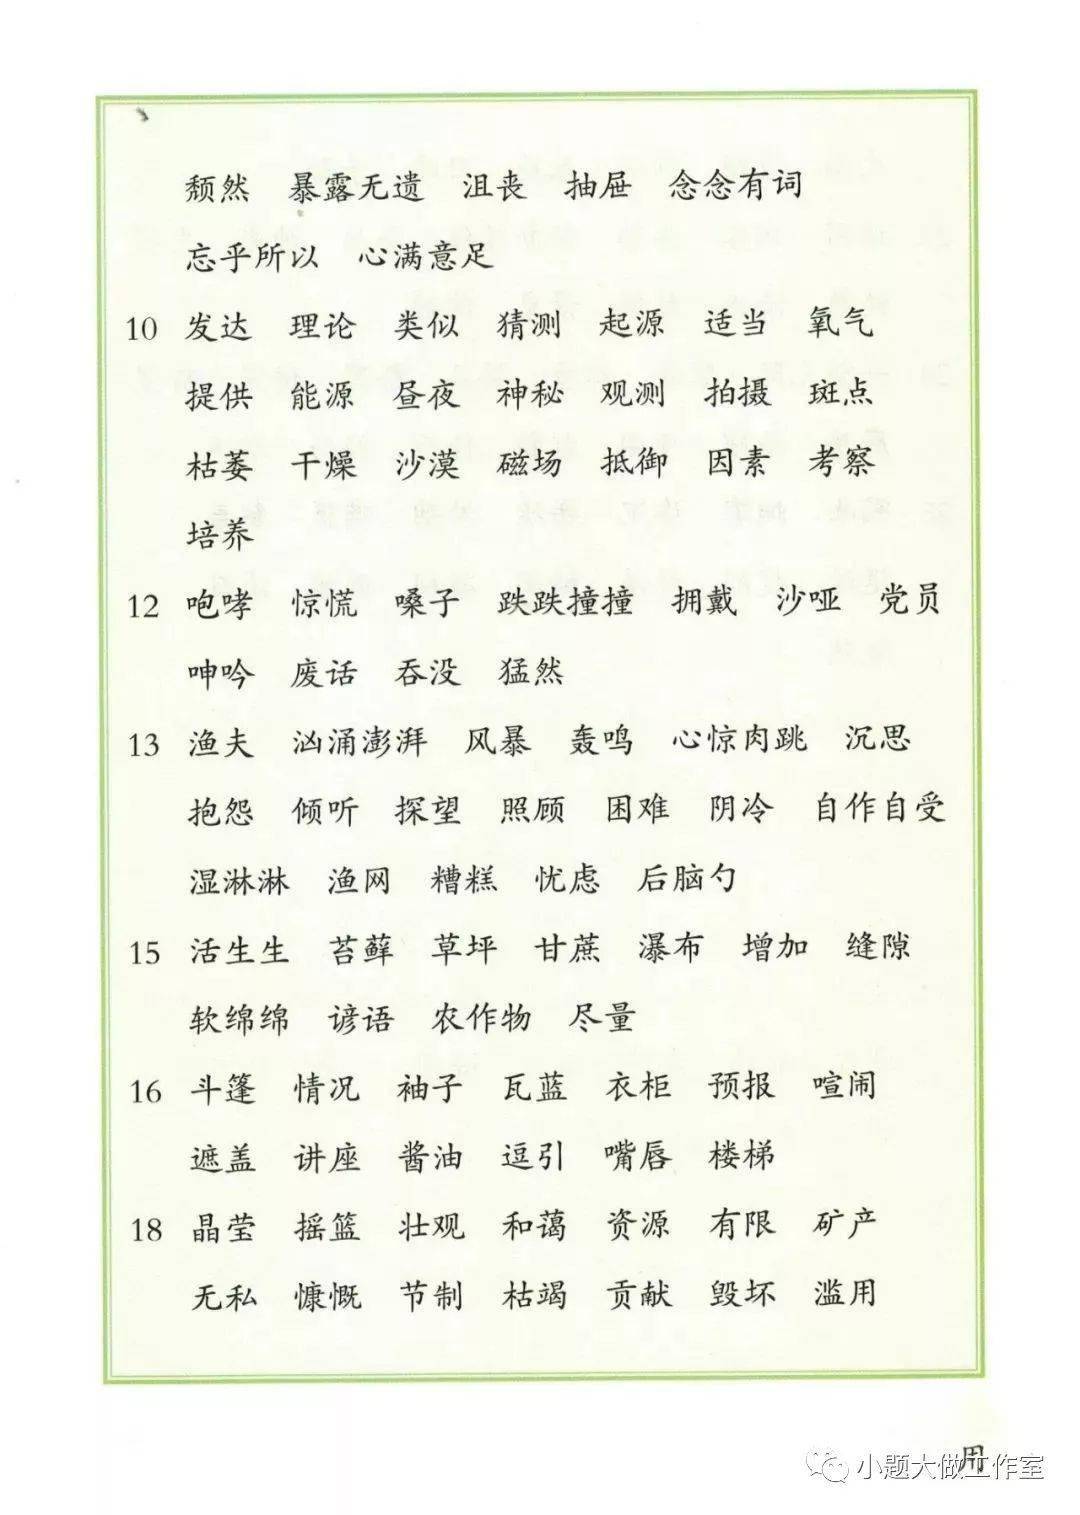 颓然 暴露无遗 沮丧 抽屉 念念有词
忘乎所以 心满意足
10 发达 理论 类似 猜测 起源 适当 氧气
提供 能源 昼夜 神秘 观测 拍摄 斑点
枯萎 干燥 沙漠 磁场 抵御 因素 考察
培养
12 咆哮 惊慌 嗓子 跌跌撞撞 拥戴 沙哑 党员
呻吟 废话 吞没 猛然
13 渔夫 汹涌澎湃 风暴 轰鸣 心惊肉跳 沉思
抱怨 倾听 探望 照顾 困难 阴冷 自作自受
湿淋淋 渔网 糟糕 忧虑 后脑勺
15 活生生 苔藓 草坪 甘蔗 瀑布 增加 缝隙
软绵绵 谚语 农作物 尽量
16 斗篷 情况 袖子 瓦蓝 衣柜 预报 喧闹
遮盖 讲座 酱油 逗引 嘴唇 楼梯
18 晶莹 摇篮 壮观 和蔼 资源 有限 矿产
无私 慷慨 节制 枯竭 贡献 毁坏 滥用
用
小题大做工作室